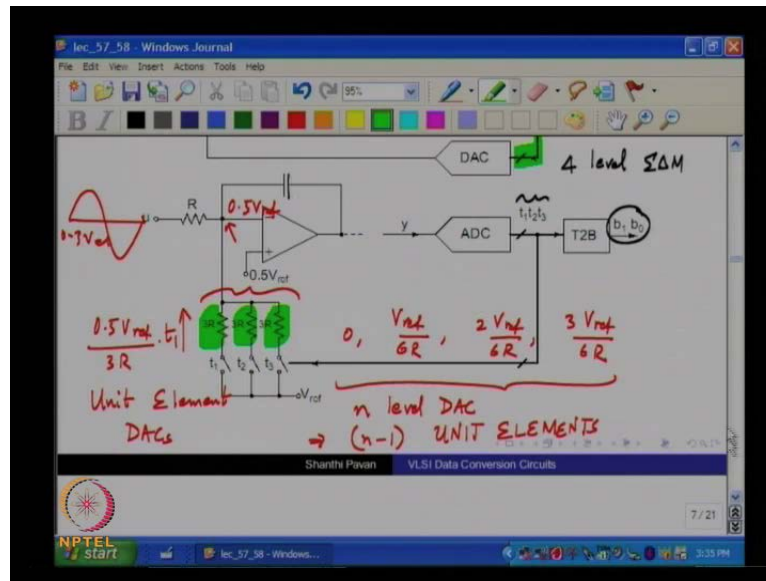 lec_57_58 - Windows Journal
File Edit View Insert Actions Tools Help
95%
B I
DAC
4 level ΣΔM
R
0.5Vref
u
0-3Vref
0.5Vref
y
ADC
t1t2t3
T2B
b1 b0
3R 3R 3R
t1 t2 t3
Vref
0.5Vref / 3R . t1
0, Vref / 6R, 2Vref / 6R, 3Vref / 6R
Unit Element
DACs
n level DAC
⇒ (n-1) UNIT ELEMENTS
Shanthi Pavan VLSI Data Conversion Circuits
7 / 21
NPTEL
start lec_57_58 - Windows... 3:35 PM